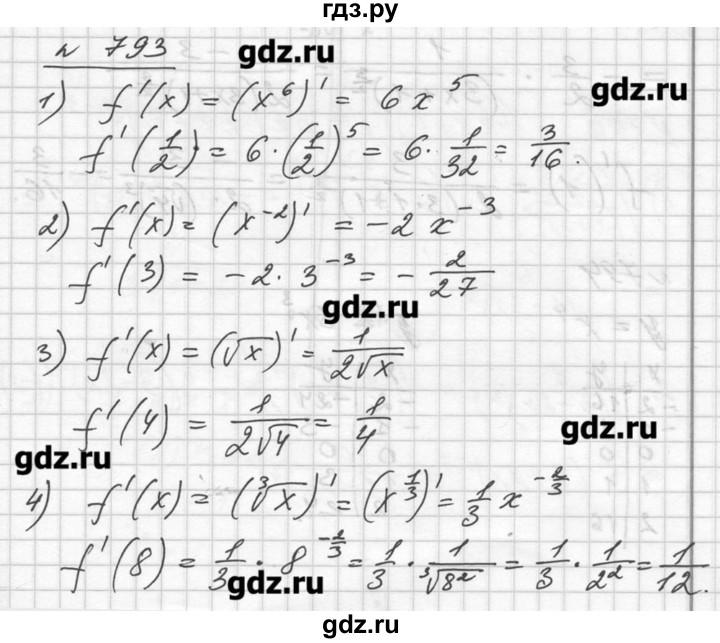 гдз.ру
№ 793
gdz.ru
gdz.ru
1) f'(x) = (x⁶)' = 6x⁵
f'(1/2) = 6·(1/2)⁵ = 6·1/32 = 3/16.
2) f'(x) = (x⁻²)' = -2x⁻³
f'(3) = -2·3⁻³ = -2/27
gdz.ru
3) f'(x) = (√x)' = 1/(2√x)
f'(4) = 1/(2√4) = 1/4
gdz.ru
gdz.ru
4) f'(x) = (∛x)' = (x^(1/3))' = 1/3 x^(-2/3)
f'(8) = 1/3·8^(-2/3) = 1/3·1/∛8² = 1/3·1/2² = 1/12.
gdz.ru
gdz.ru